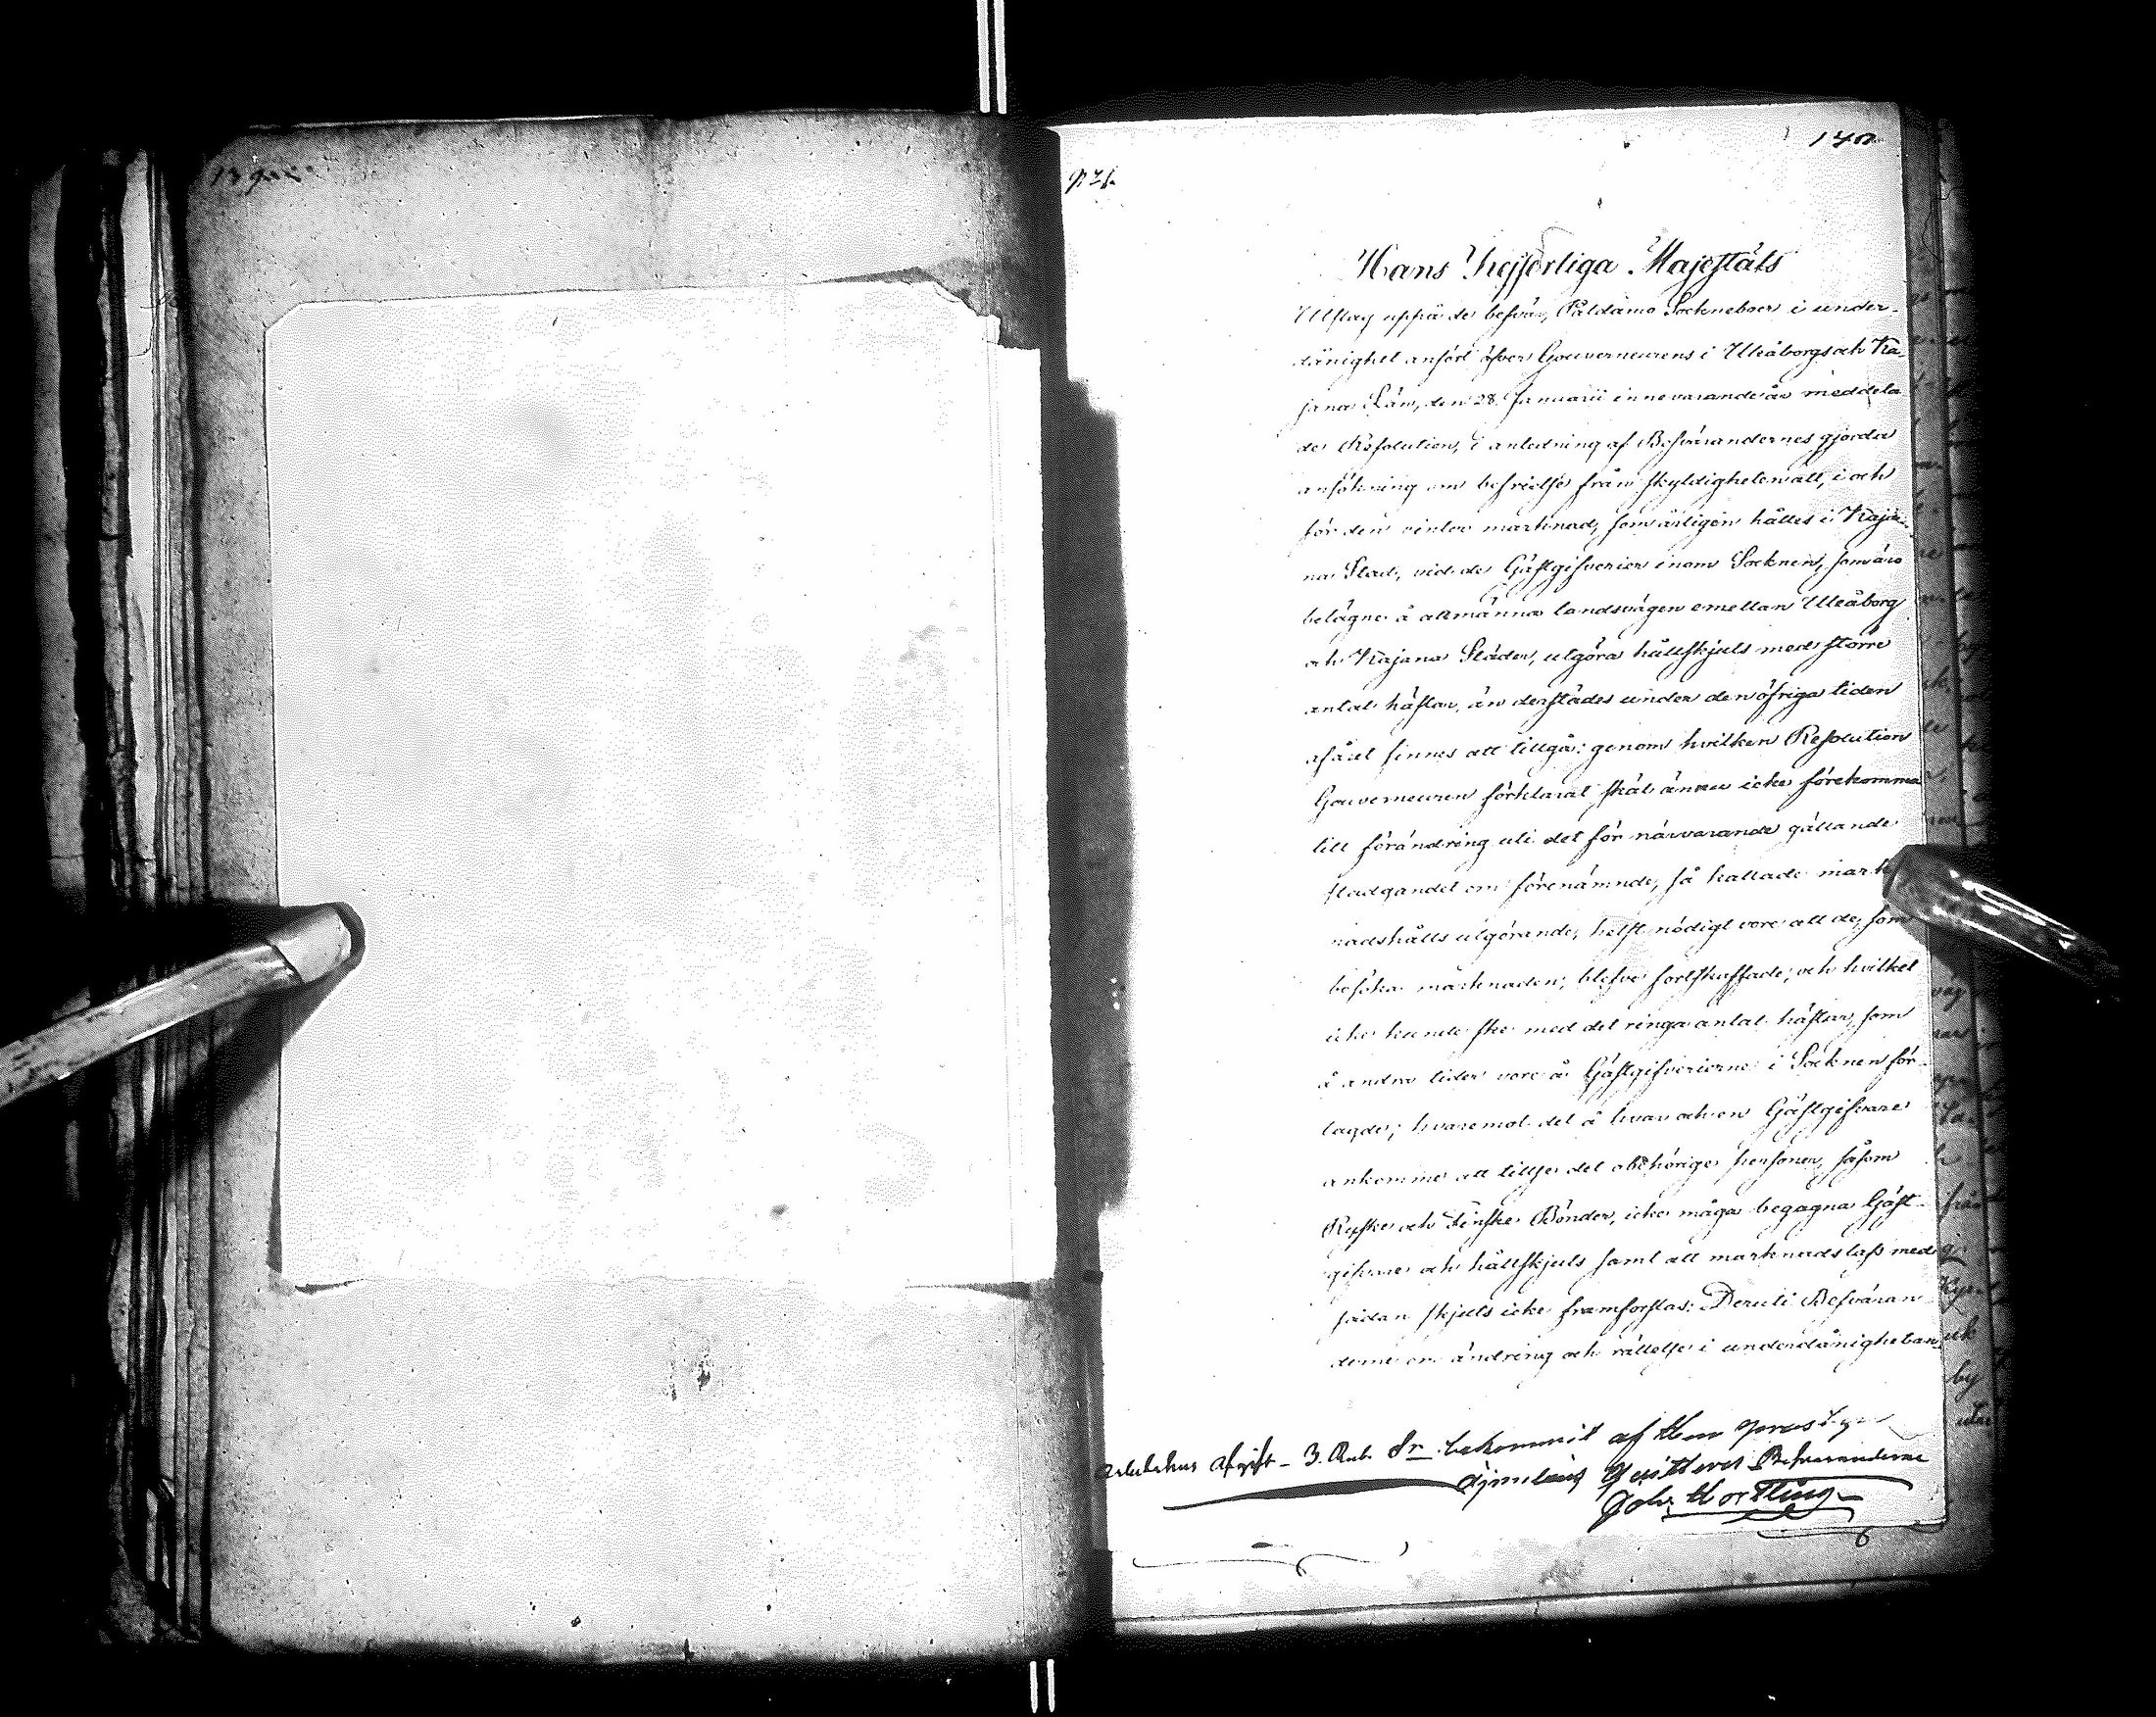 139
140
Hans Kejserliga Majestäts
Utslag uppå de besvär, Paldamo Sockneboer i under-
dånighet anfört öfver Gouverneurens i Uleåborgs och Ka-
jana Län, den 28 Januarii innevarande år meddela-
de Resolution, i anledning af Besvärandernes gjorda
ansökning om befrielse från skyldigheten att, i och
för den vinter marknad, som årligen hålles i Kaja-
na Stad, vid de Gästgifverier inom Socknen, som äro
belägne å allmänna landsvägen emellan Uleåborg
och Kajana Städer, utgöra hållskjuts med större
antal hästar, än derstädes under den öfriga tiden
af året finnes att tillgå: genom hvilken Resolution
Gouverneuren förklarat skäl ännu icke förekomma
till förändring uti det för närvarande gällande
stadgandet om förenämnde, så kallade mark-
nadshålls utgörande, helst nödigt vore att de, som
besöka marknaden, blefve fortskaffade, och hvilket
icke kunde ske med det ringa antal hästar, som
å andra tider vore å Gästgifverierne i Socknen för-
lagde; hvaremot det å hvar och en Gästgifvare
ankomme att tillse det obehörige personer, såsom
Ryske och Finske Bönder, icke måga begagna Gäst-
gifvare och hållskjuts samt att marknadslass med
sådan skjuts icke framforslas: Deruti Besväran-
derne om ändring och rättelse i underdånighet an-
afgift 3. Rub. Sr bekommit af
qvitterar Besvaranderne
Joh.